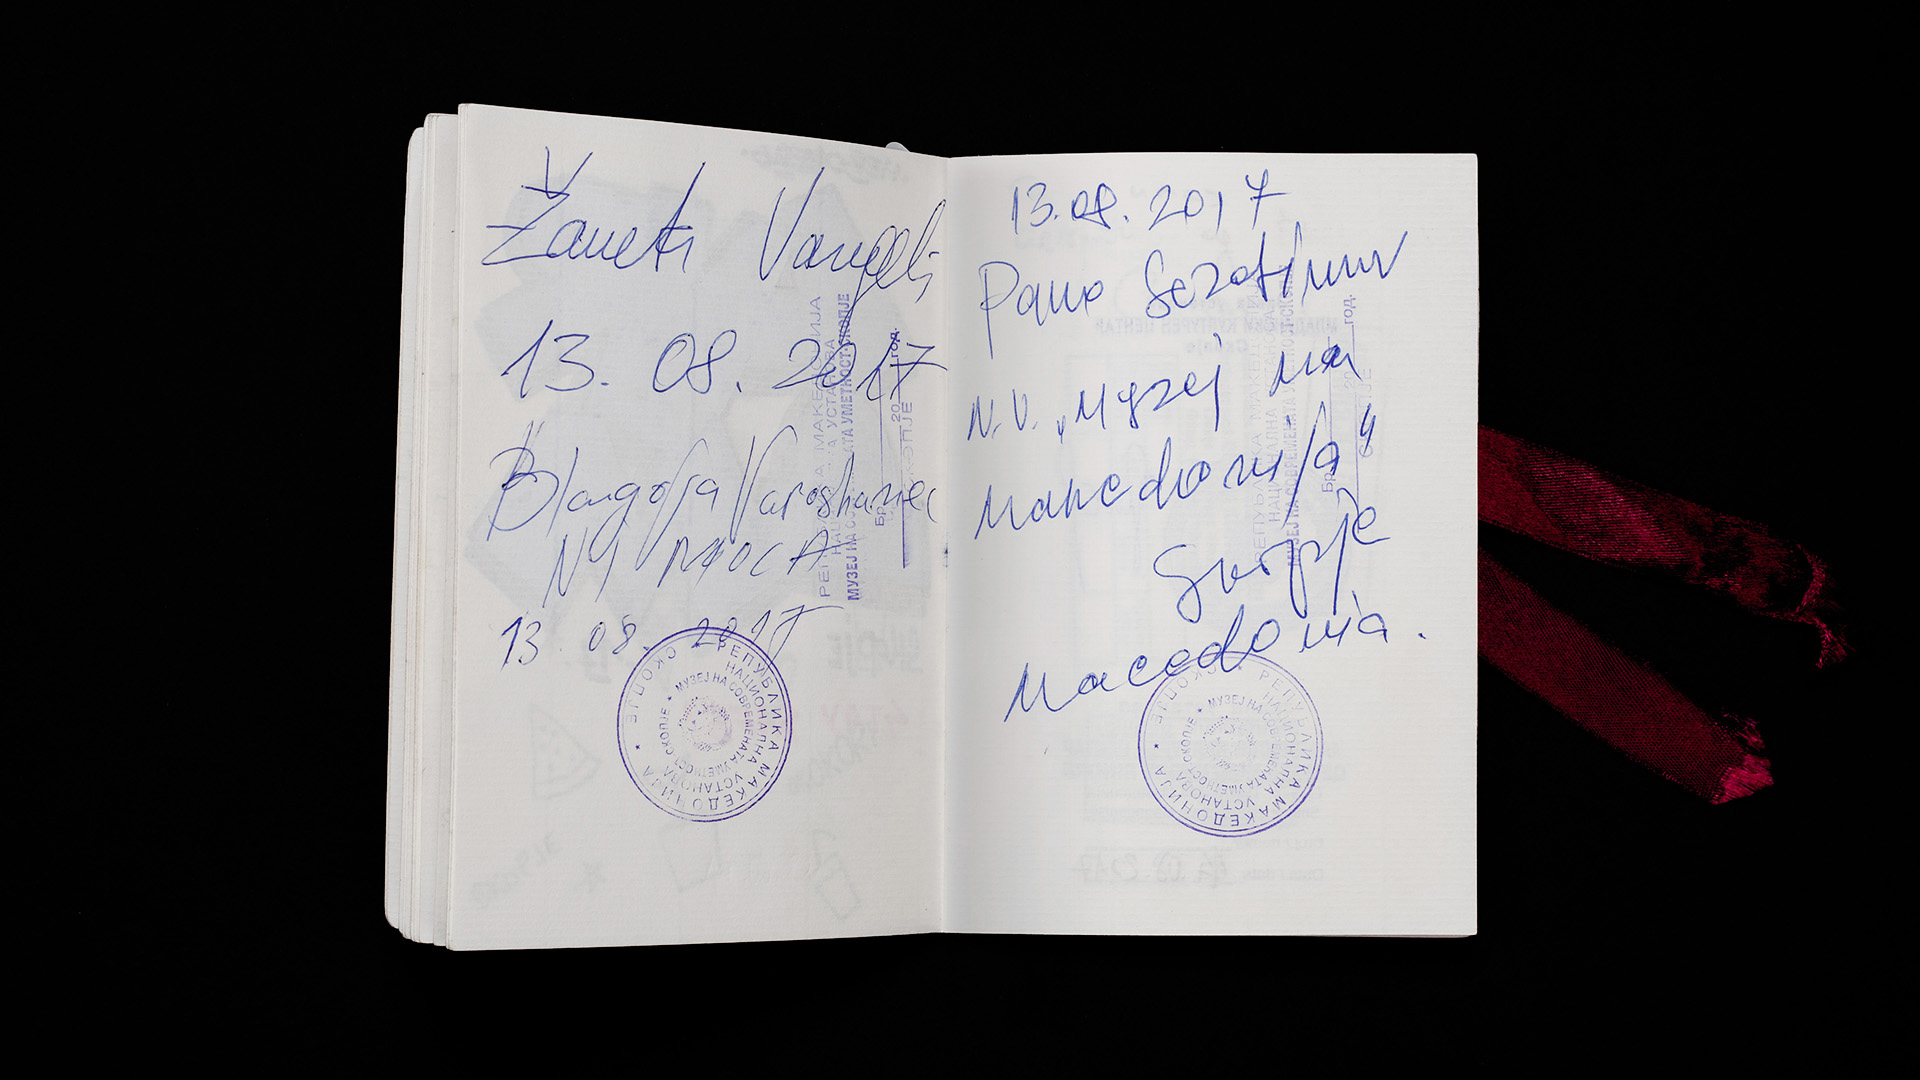 Žaneta Vangeli
13. 08. 2017
Blagoja Varoshanec
13 08. 2017
РЕПУБЛИКА МАКЕДОНИЈА
НАЦИОНАЛНА УСТАНОВА
МУЗЕЈ НА СОВРЕМЕНАТА УМЕТНОСТ-СКОПЈЕ
Бр. 20 год.
СКОПЈЕ
★ РЕПУБЛИКА МАКЕДОНИЈА ★ СКОПЈЕ
НАЦИОНАЛНА УСТАНОВА
МУЗЕЈ НА СОВРЕМЕНАТА УМЕТНОСТ СКОПЈЕ ★
13.08.2017
N.U. „Музеј на
Македонија“
Skopje
Macedonia.
РЕПУБЛИКА МАКЕДОНИЈА
НАЦИОНАЛНА УСТАНОВА
МУЗЕЈ НА СОВРЕМЕНАТА УМЕТНОСТ-СКОПЈЕ
Бр. 20 год.
СКОПЈЕ
РЕПУБЛИКА МАКЕДОНИЈА ★ СКОПЈЕ
НАЦИОНАЛНА УСТАНОВА
МУЗЕЈ НА СОВРЕМЕНАТА УМЕТНОСТ СКОПЈЕ ★